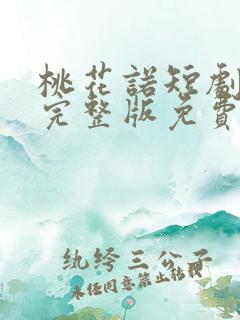 桃花諾短劇
完整版免費
紈絝三公子
未经同意禁止转载